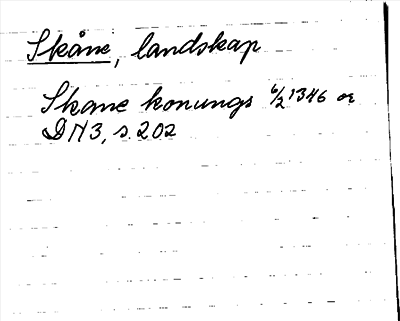 Skåne, landskap
Skane konungs 6/2 1346 or
DN3, s. 202